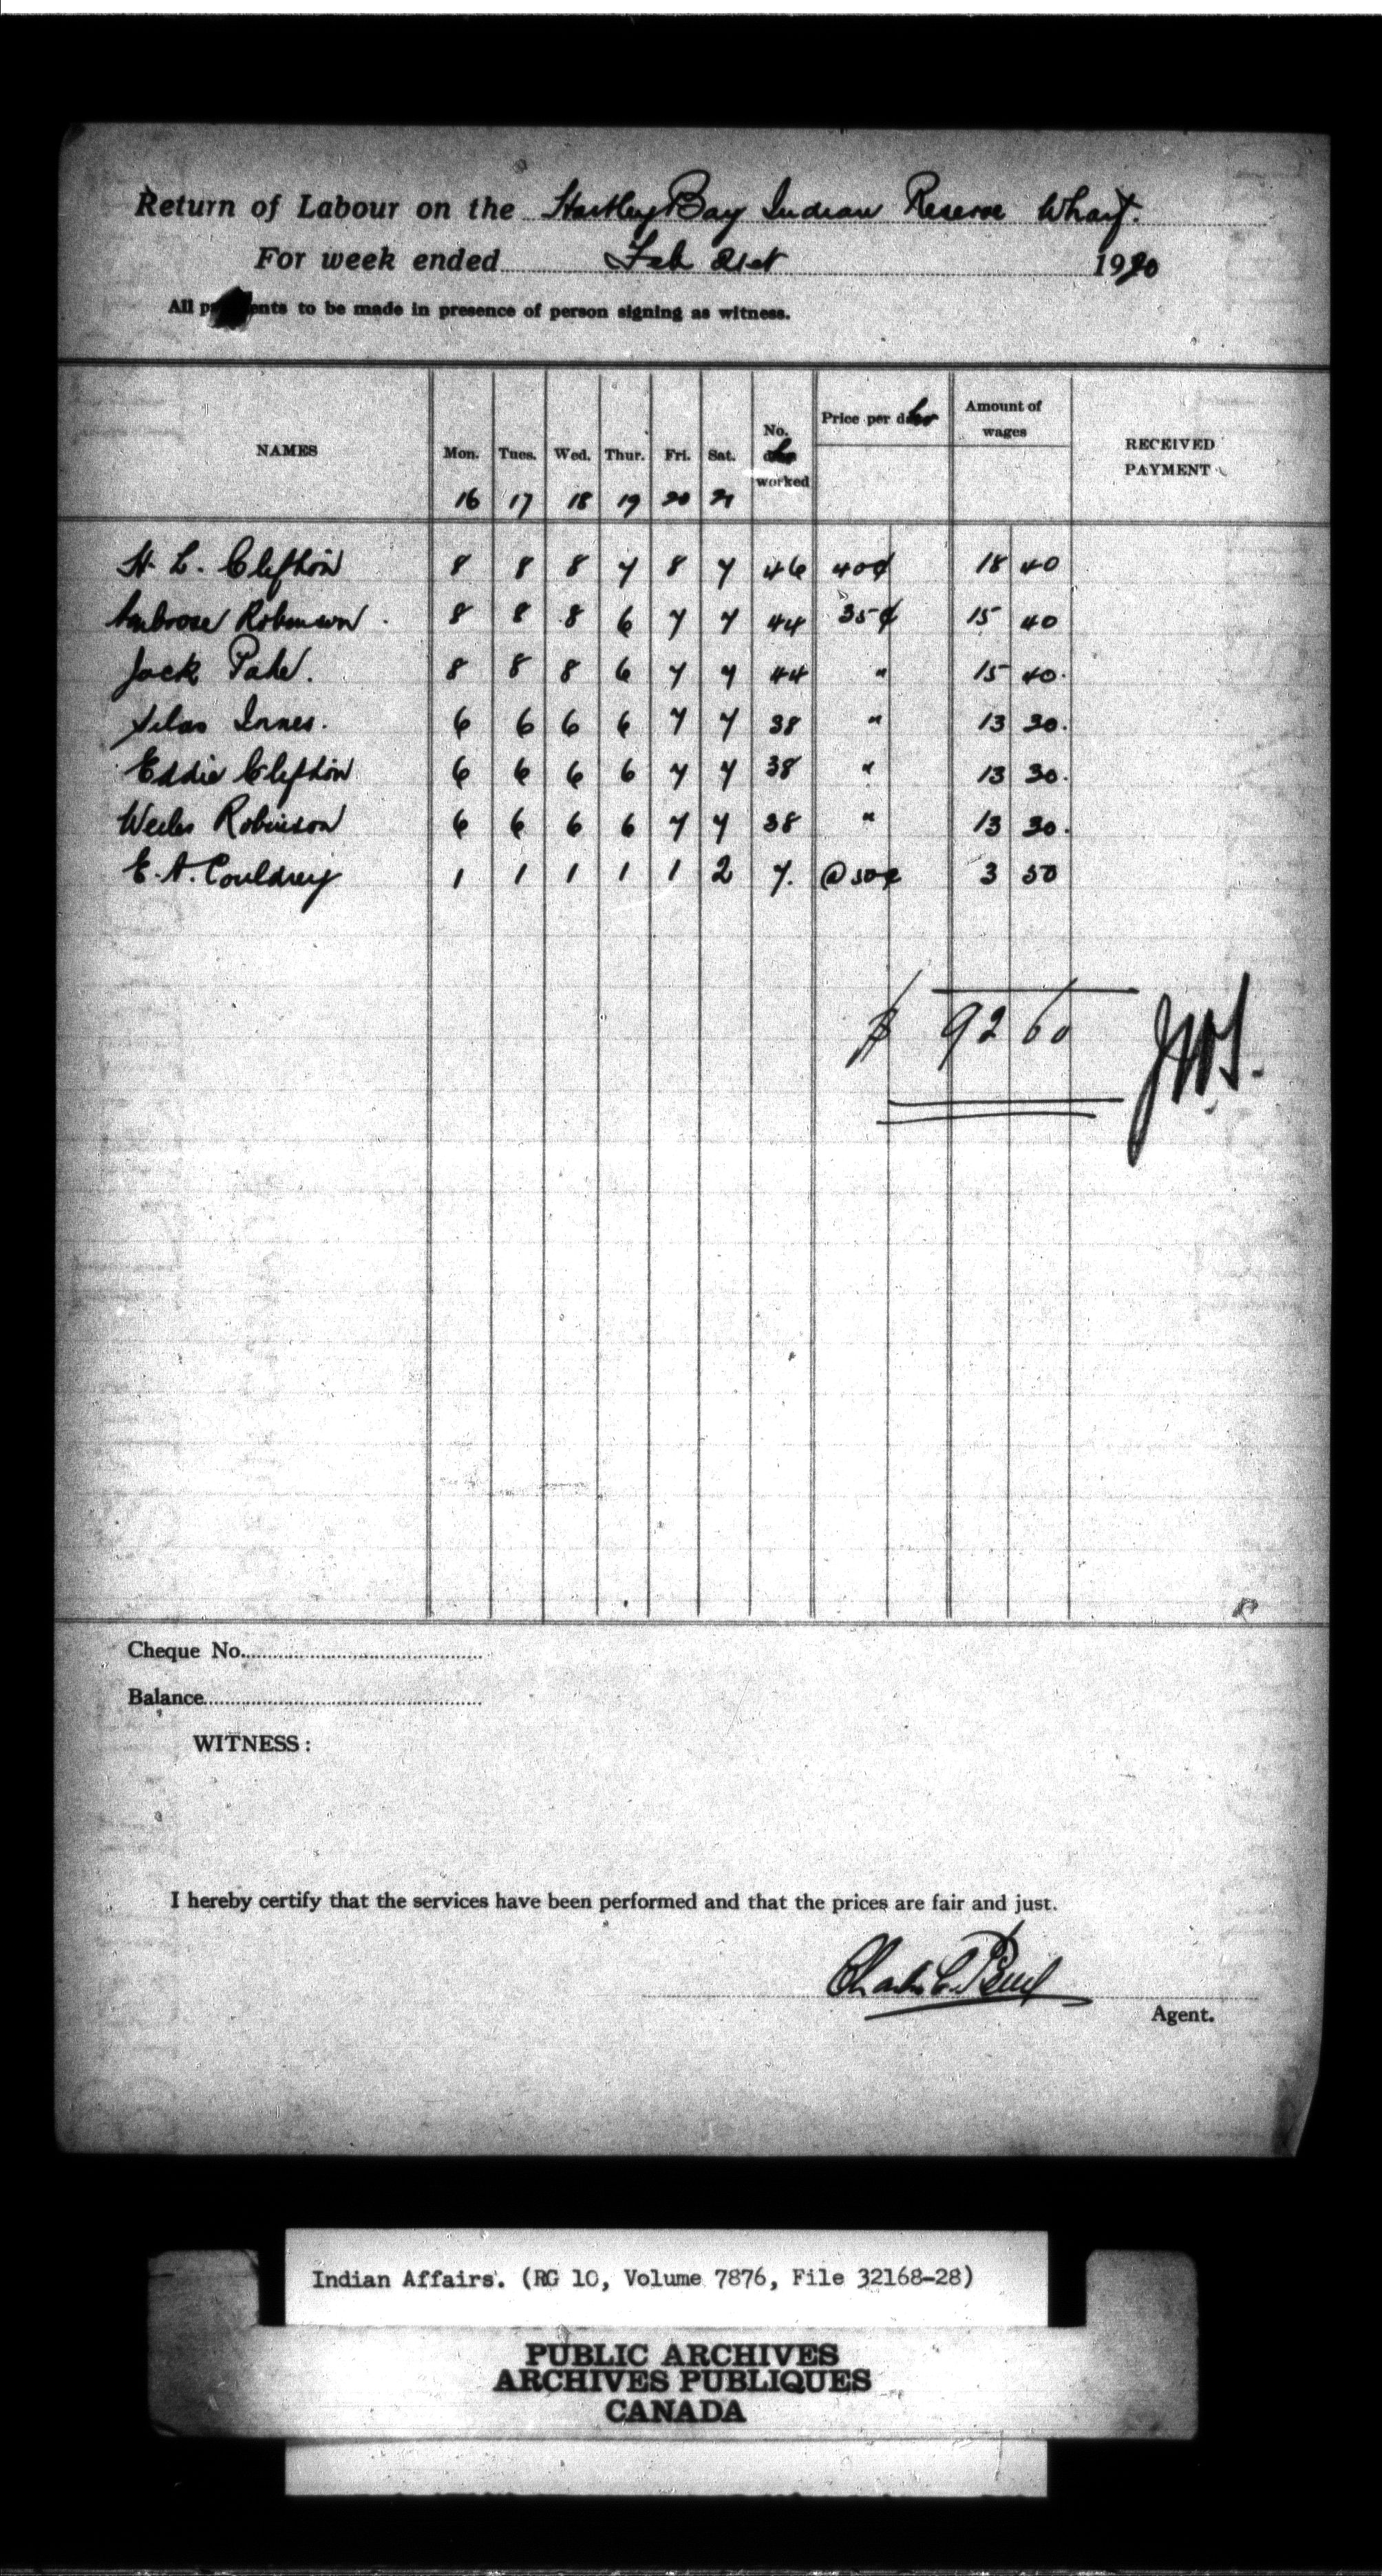 Return of Labour on the Hartley Bay Indian Reserve Wharf.
For week ended Feb 21st 1920
All p ents to be made in presence of person signing as witness.
NAMES Mon. Tues. Wed. Thur. Fri. Sat. No. hrs worked Price per hr Amount of wages RECEIVED PAYMENT
16 17 18 19 20 21
H. L. Clifton 8 8 8 7 8 7 46 40¢ 18 40
Ambrose Robinson 8 8 8 6 7 7 44 35¢ 15 40
Jack Pahl. 8 8 8 6 7 7 44 " 15 40.
Silas Innes. 6 6 6 6 7 7 38 " 13 30.
Eddie Clifton 6 6 6 6 7 7 38 " 13 30.
Robinson 6 6 6 6 7 7 38 " 13 30.
E. A. Couldrey 1 1 1 1 1 2 7. @ 50¢ 3 50
$ 92 60
Cheque No.
Balance
WITNESS:
I hereby certify that the services have been performed and that the prices are fair and just.
Charles C. Perry
Agent.
Indian Affairs. (RG 10, Volume 7876, File 32168-28)
PUBLIC ARCHIVES
ARCHIVES PUBLIQUES
CANADA